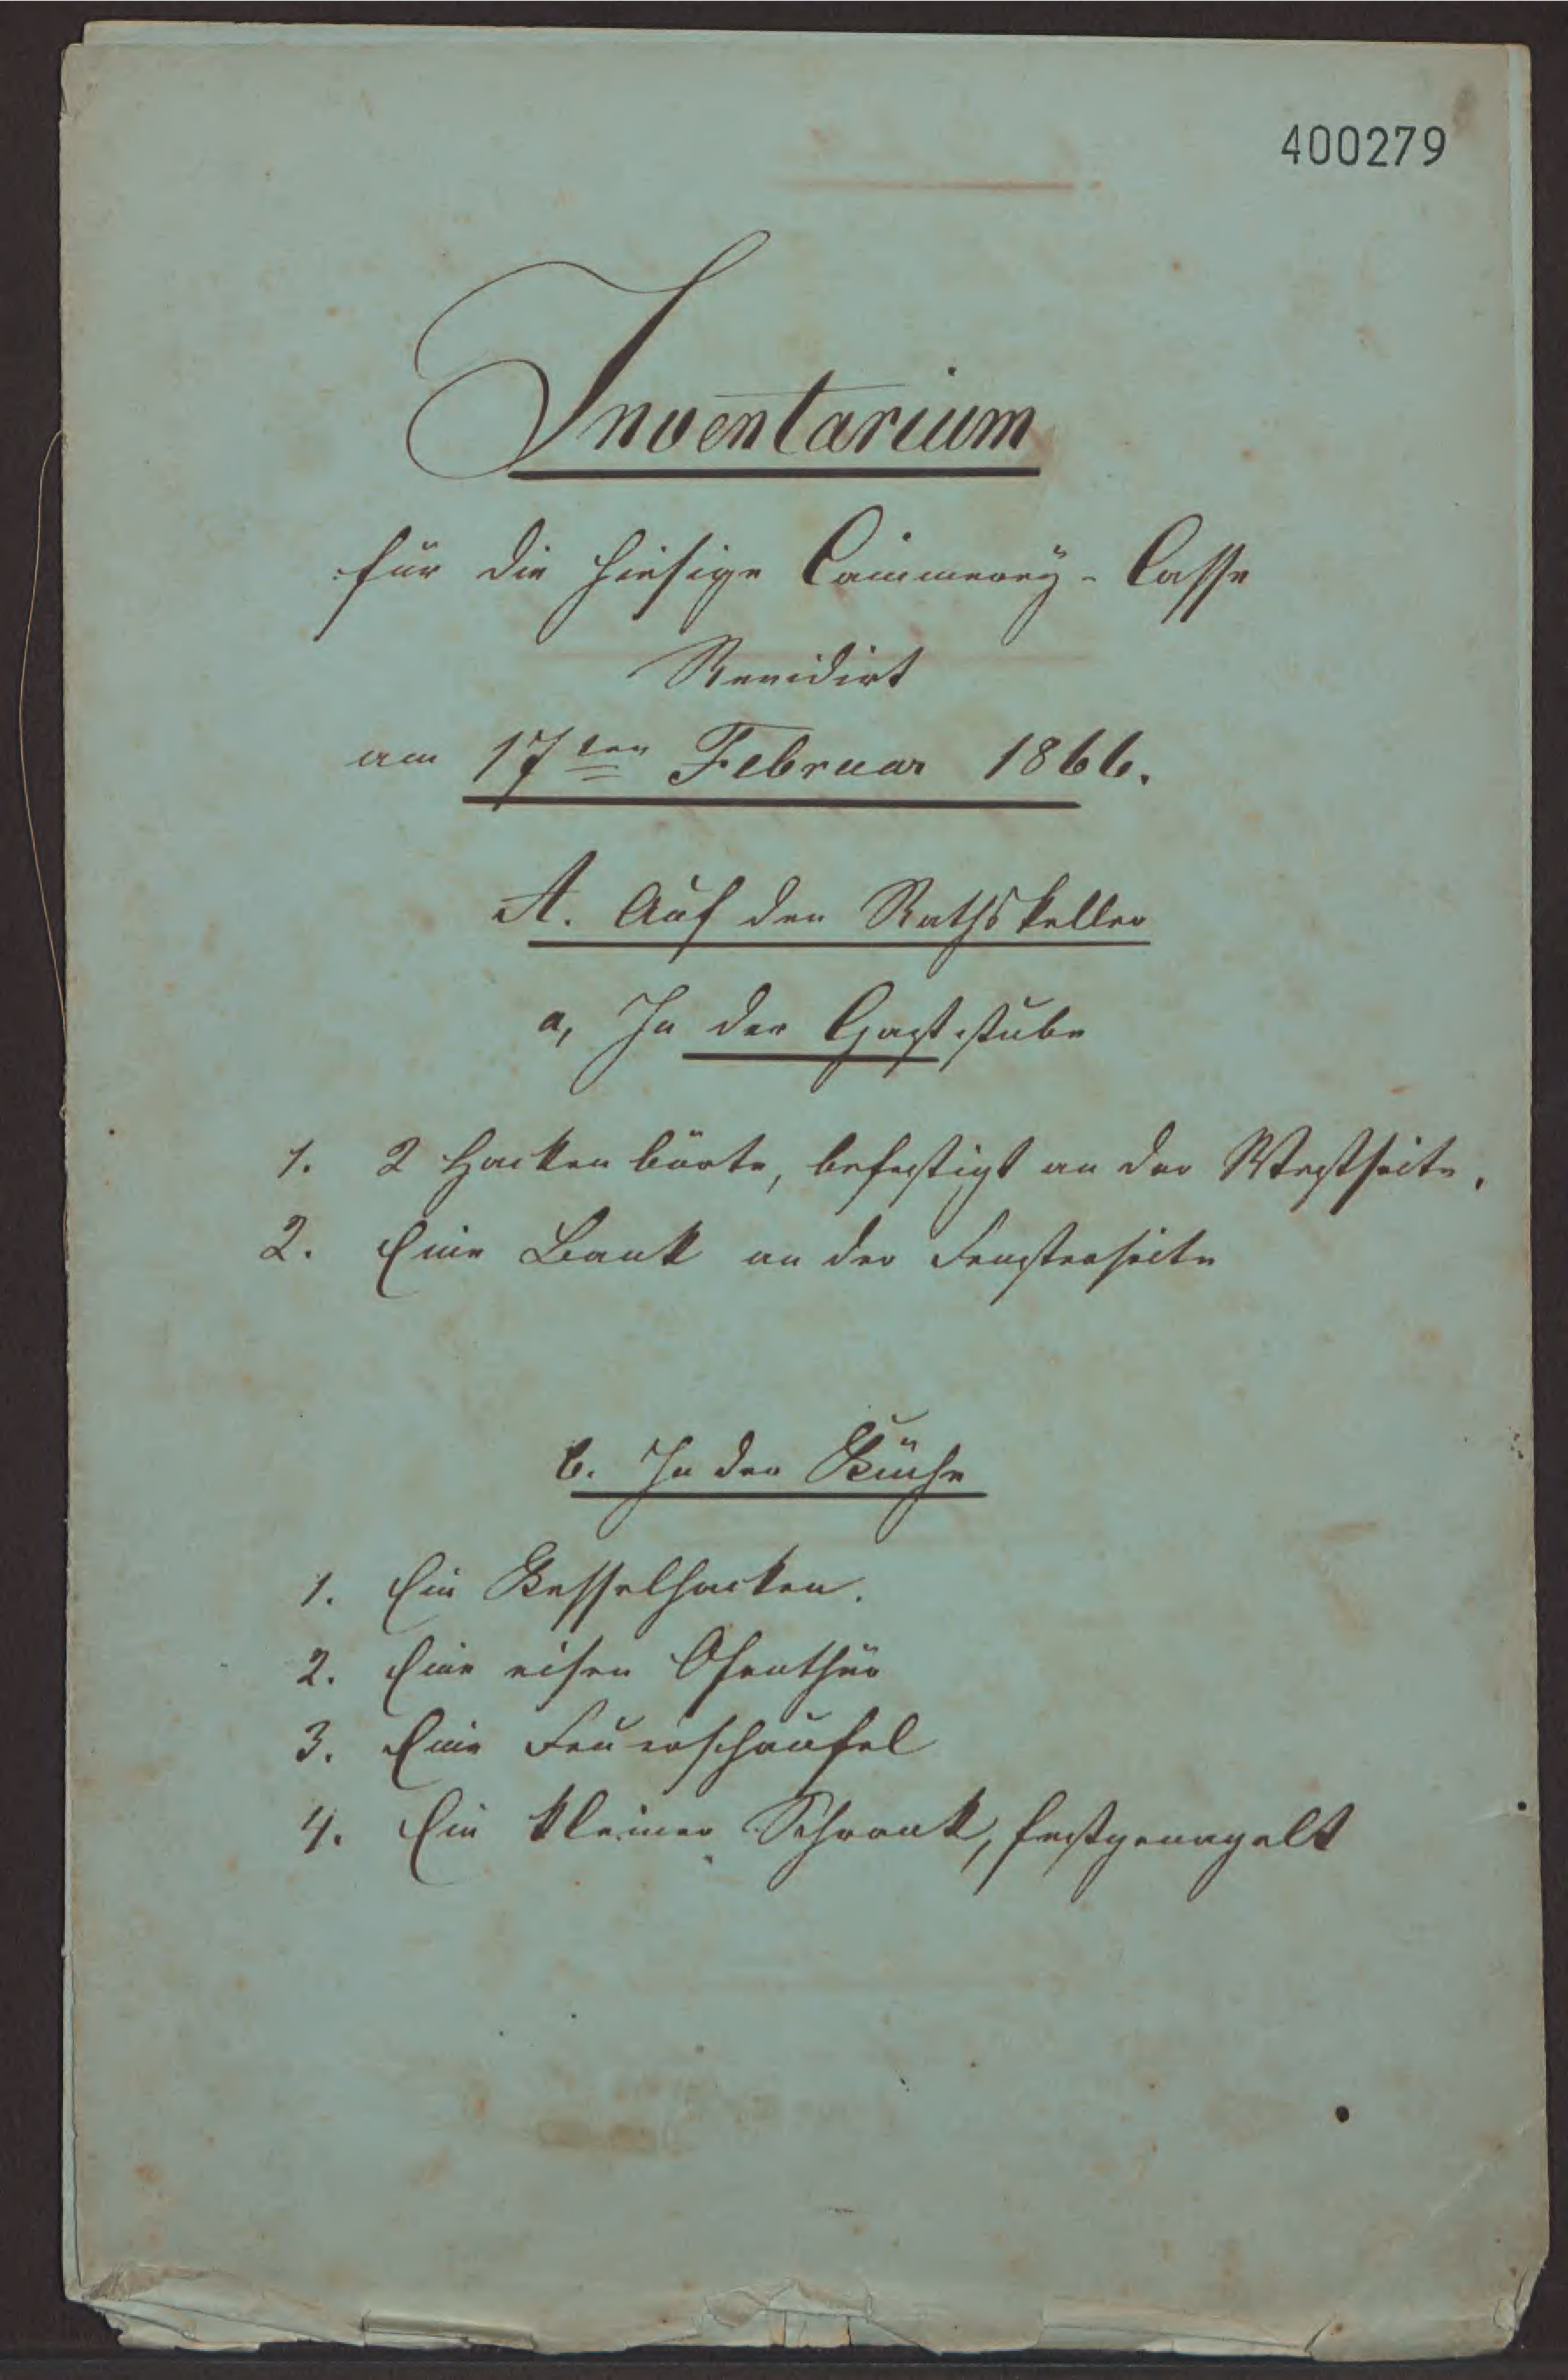 400279
Inventarium
für die hiesige Cämmerey-Casse
Revidirt
am 17ten Februar 1866.
A. Auf den Rathskeller
a, In der Gaststube
1. 2 Hackenbörte, befestigt an der Westseite.
2. Eine Bank an der Fensterseite
b. In der Küche
1. Ein Kesselhacken.
2. Eine eisen Ofenthür
3. Eine Feuerschaufel
4. Ein kleiner Schrank, festgenagelt